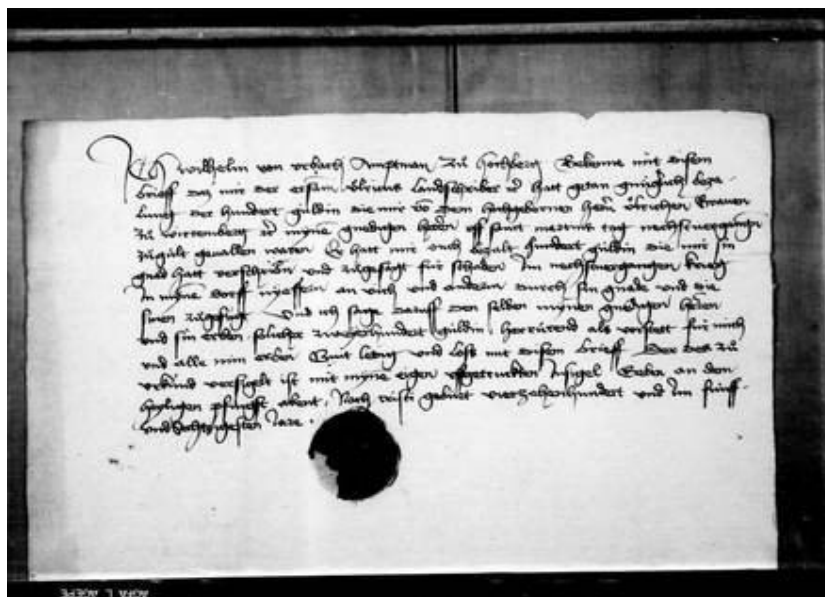 Ich wilhelm von urbach Amptman zů hochberg Bekenne mit disem
brieff das mir der ersam Ulricus landschriber etc hatt getan gnůglich beza-
lung der hundert guldin die mir von dem hochgebornen herrn Ulrichen Graven
zů wirttemberg etc mynem gnedigen herren uff sant martins tag nechstvergangen
zůgült gevallen waren Er hatt mir ouch bezalt hundert guldin die mir sin
gnad hatt verschriben und zůgesagt für schaden Im nechstvergangen krieg
In mynem dorff an vich und anderm durch sin gnade und die
sinen zůgefügt Und ich sage daruff den selben mynen gnedigen herren
und sin erben solicher zweyhundert guldin herrürend als vorstett für mich
und alle min erben Quit ledig und loß mit disem brieff Der des zů
urkünd versigelt ist mit myne eigen uffgetruckten Insigel Geben an dem
heyligen pfingst abent Nach cristi gebürt vierzehenhundert und Im fünff
undsechtzigesten Jare